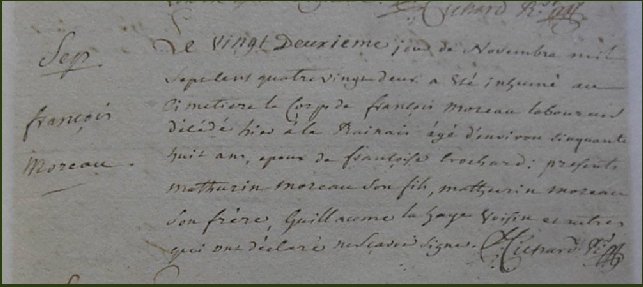 Richard Rr
Sep.
françois
Moreau.
Le Vingt Deuxieme jour de Novembre mil
Sept cens quatre vingt deux a été inhumé au
Cimetiere le Corps de françois moreau laboureur
décédé hier à la Rainais agé d'environ cinquante
huit ans, epoux de françoise brochard: presents
mathurin moreau son fils, mathurin moreau
Son frère, Guillaume la haye Voisin et autres
qui ont déclaré ne scavoir signer. Richard Rr